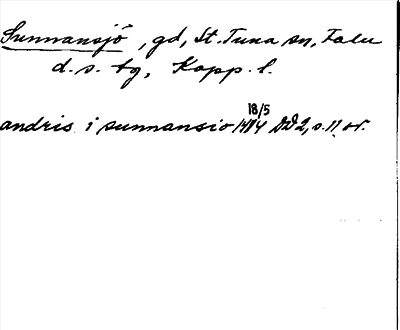 Sunnansjö, gd, St. Tuna sn, Falu
d.s. tg, Kopp. l.
18/5
andris i sunnansio 1414 DD 2, s. 11 or.